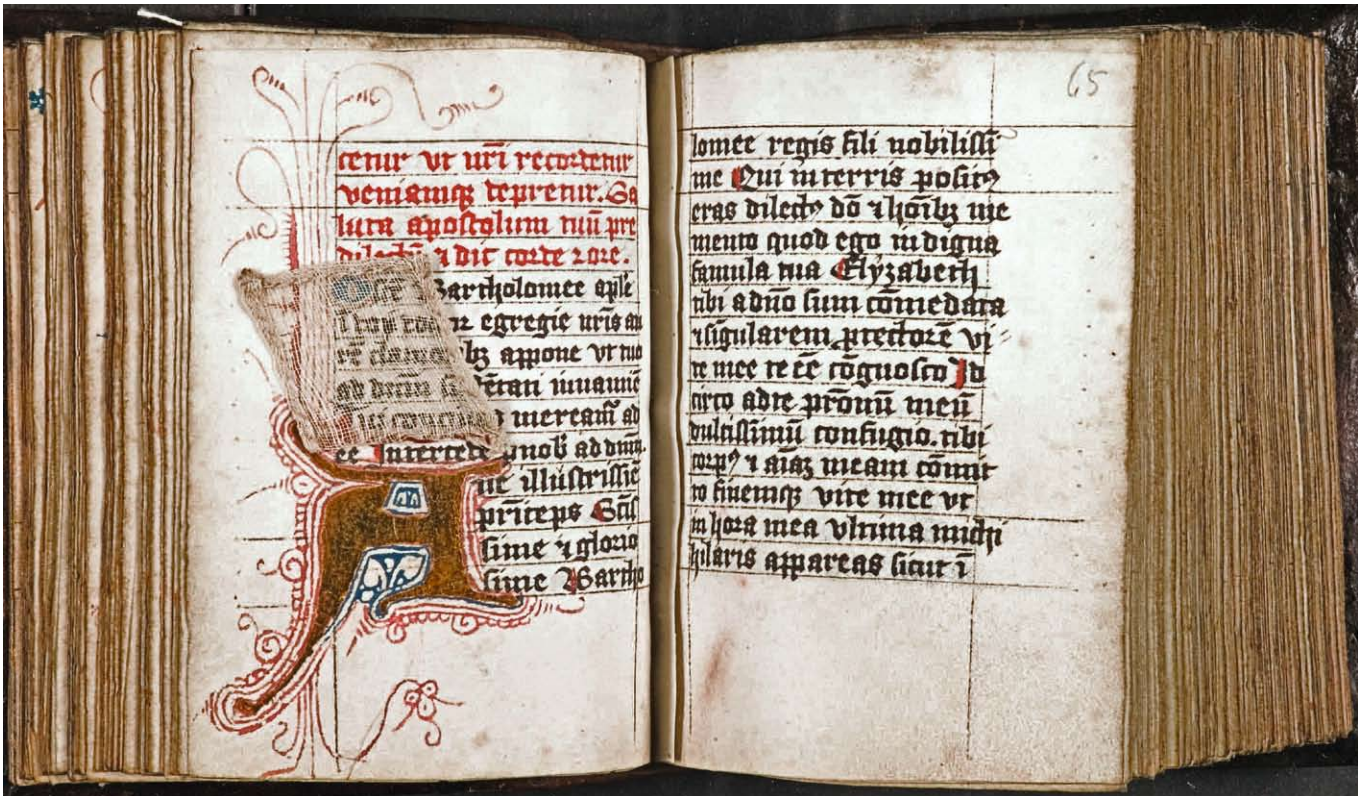 cetur vt uri̅ recordetur
veniamq̨ depretur. Sa
luta apostolum tuu̅ pre
dilectu̅ ⁊ dic corde ⁊ ore.
Bartholomee apl'e
egregie uris
bȝ appone vt tuo
ad iuuame̅
meream̅ ad
ee Intercede ꝓ nob̅ ad dnm̅.
ne illustrissie̅
pri̅ceps Sc̅is
sime ⁊ glorio
sime Bartho
65
lomee regis fili nobilissi̅
me Qui in terris posit⁹
eras dilect⁹ do̅ ⁊ ho̅ibȝ me
mento quod ego indigna
famula tua Elyzabeth
tibi a dn̅o sum co̅medata
⁊ si̅gularem ꝓtectore̅ vi
te mee te e̅e̅ co̅gnosco Id
circo ad te pr̅onu̅ meu̅
dulcissimu̅ confugio. tibi
corp⁹ ⁊ ai̅aȝ meam co̅mit
to finemq̨ vite mee vt
in hora mea vltima michi
hilaris appareas sicut i̅